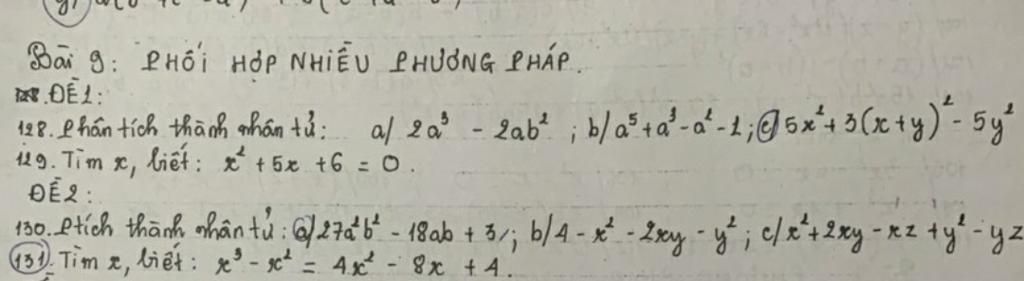 Bài 9: PHỐI HỢP NHIỀU PHƯƠNG PHÁP.
ĐỀ1:
128. Phân tích thành nhân tử: a/ 2a³ - 2ab² ; b/ a⁵+a³-a²-1; c/ 5x²+3(x+y)²-5y²
129. Tìm x, biết: x² + 5x + 6 = 0.
ĐỀ2:
130. Ptích thành nhân tử: a/ 27a²b² - 18ab + 3; b/ 4 - x² - 2xy - y²; c/ x²+2xy-xz+y²-yz
131. Tìm x, biết: x³ - x² = 4x² - 8x + 4.